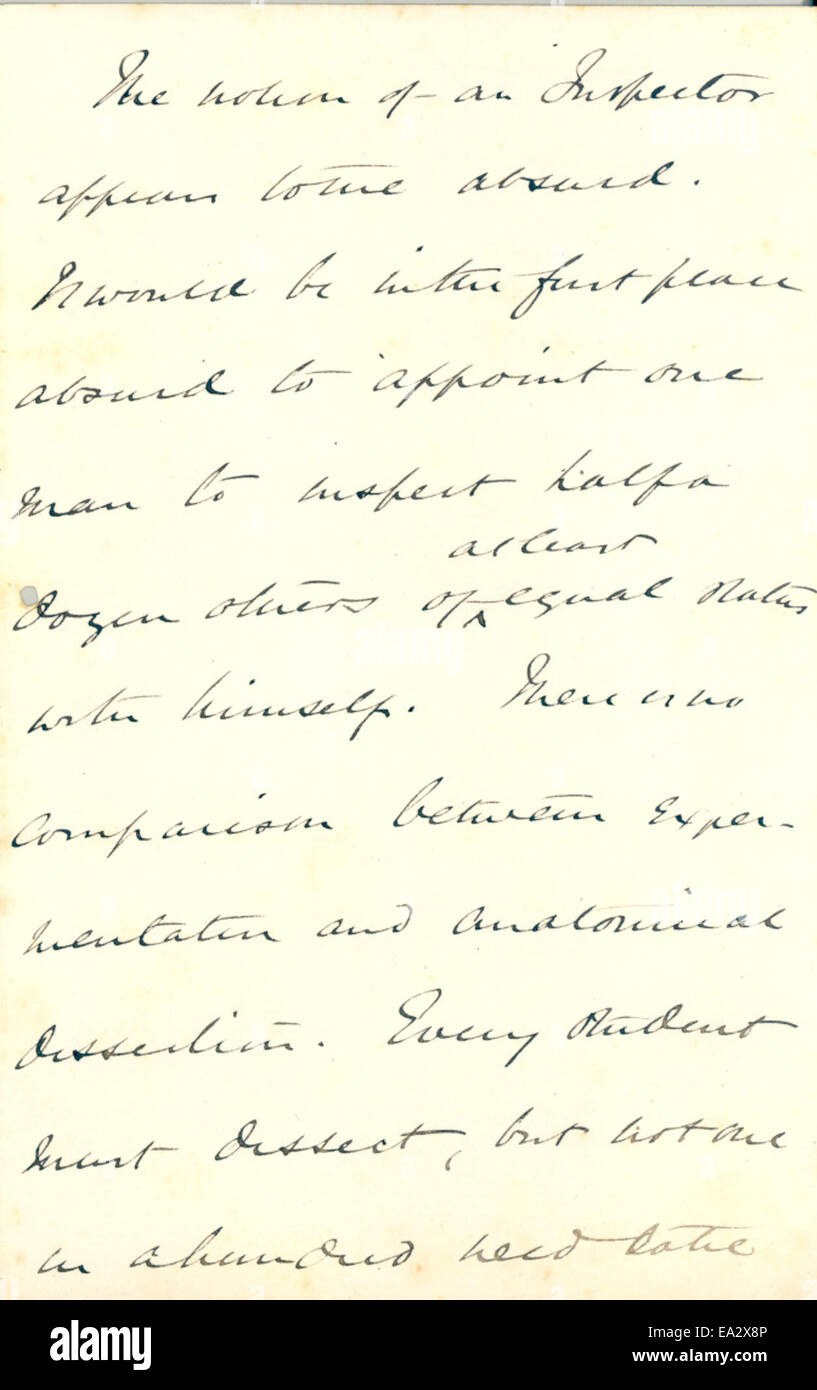 The notion of an Inspector
appears to me absurd.
It would be in the first place
absurd to appoint one
man to inspect half a
at least
dozen others of ‸ equal status
with himself. There is no
comparison between exper-
mentation and anatomical
dissection. Every student
must dissect, but not one
in a hundred need
alamy
Image ID: EA2X8P
www.alamy.com